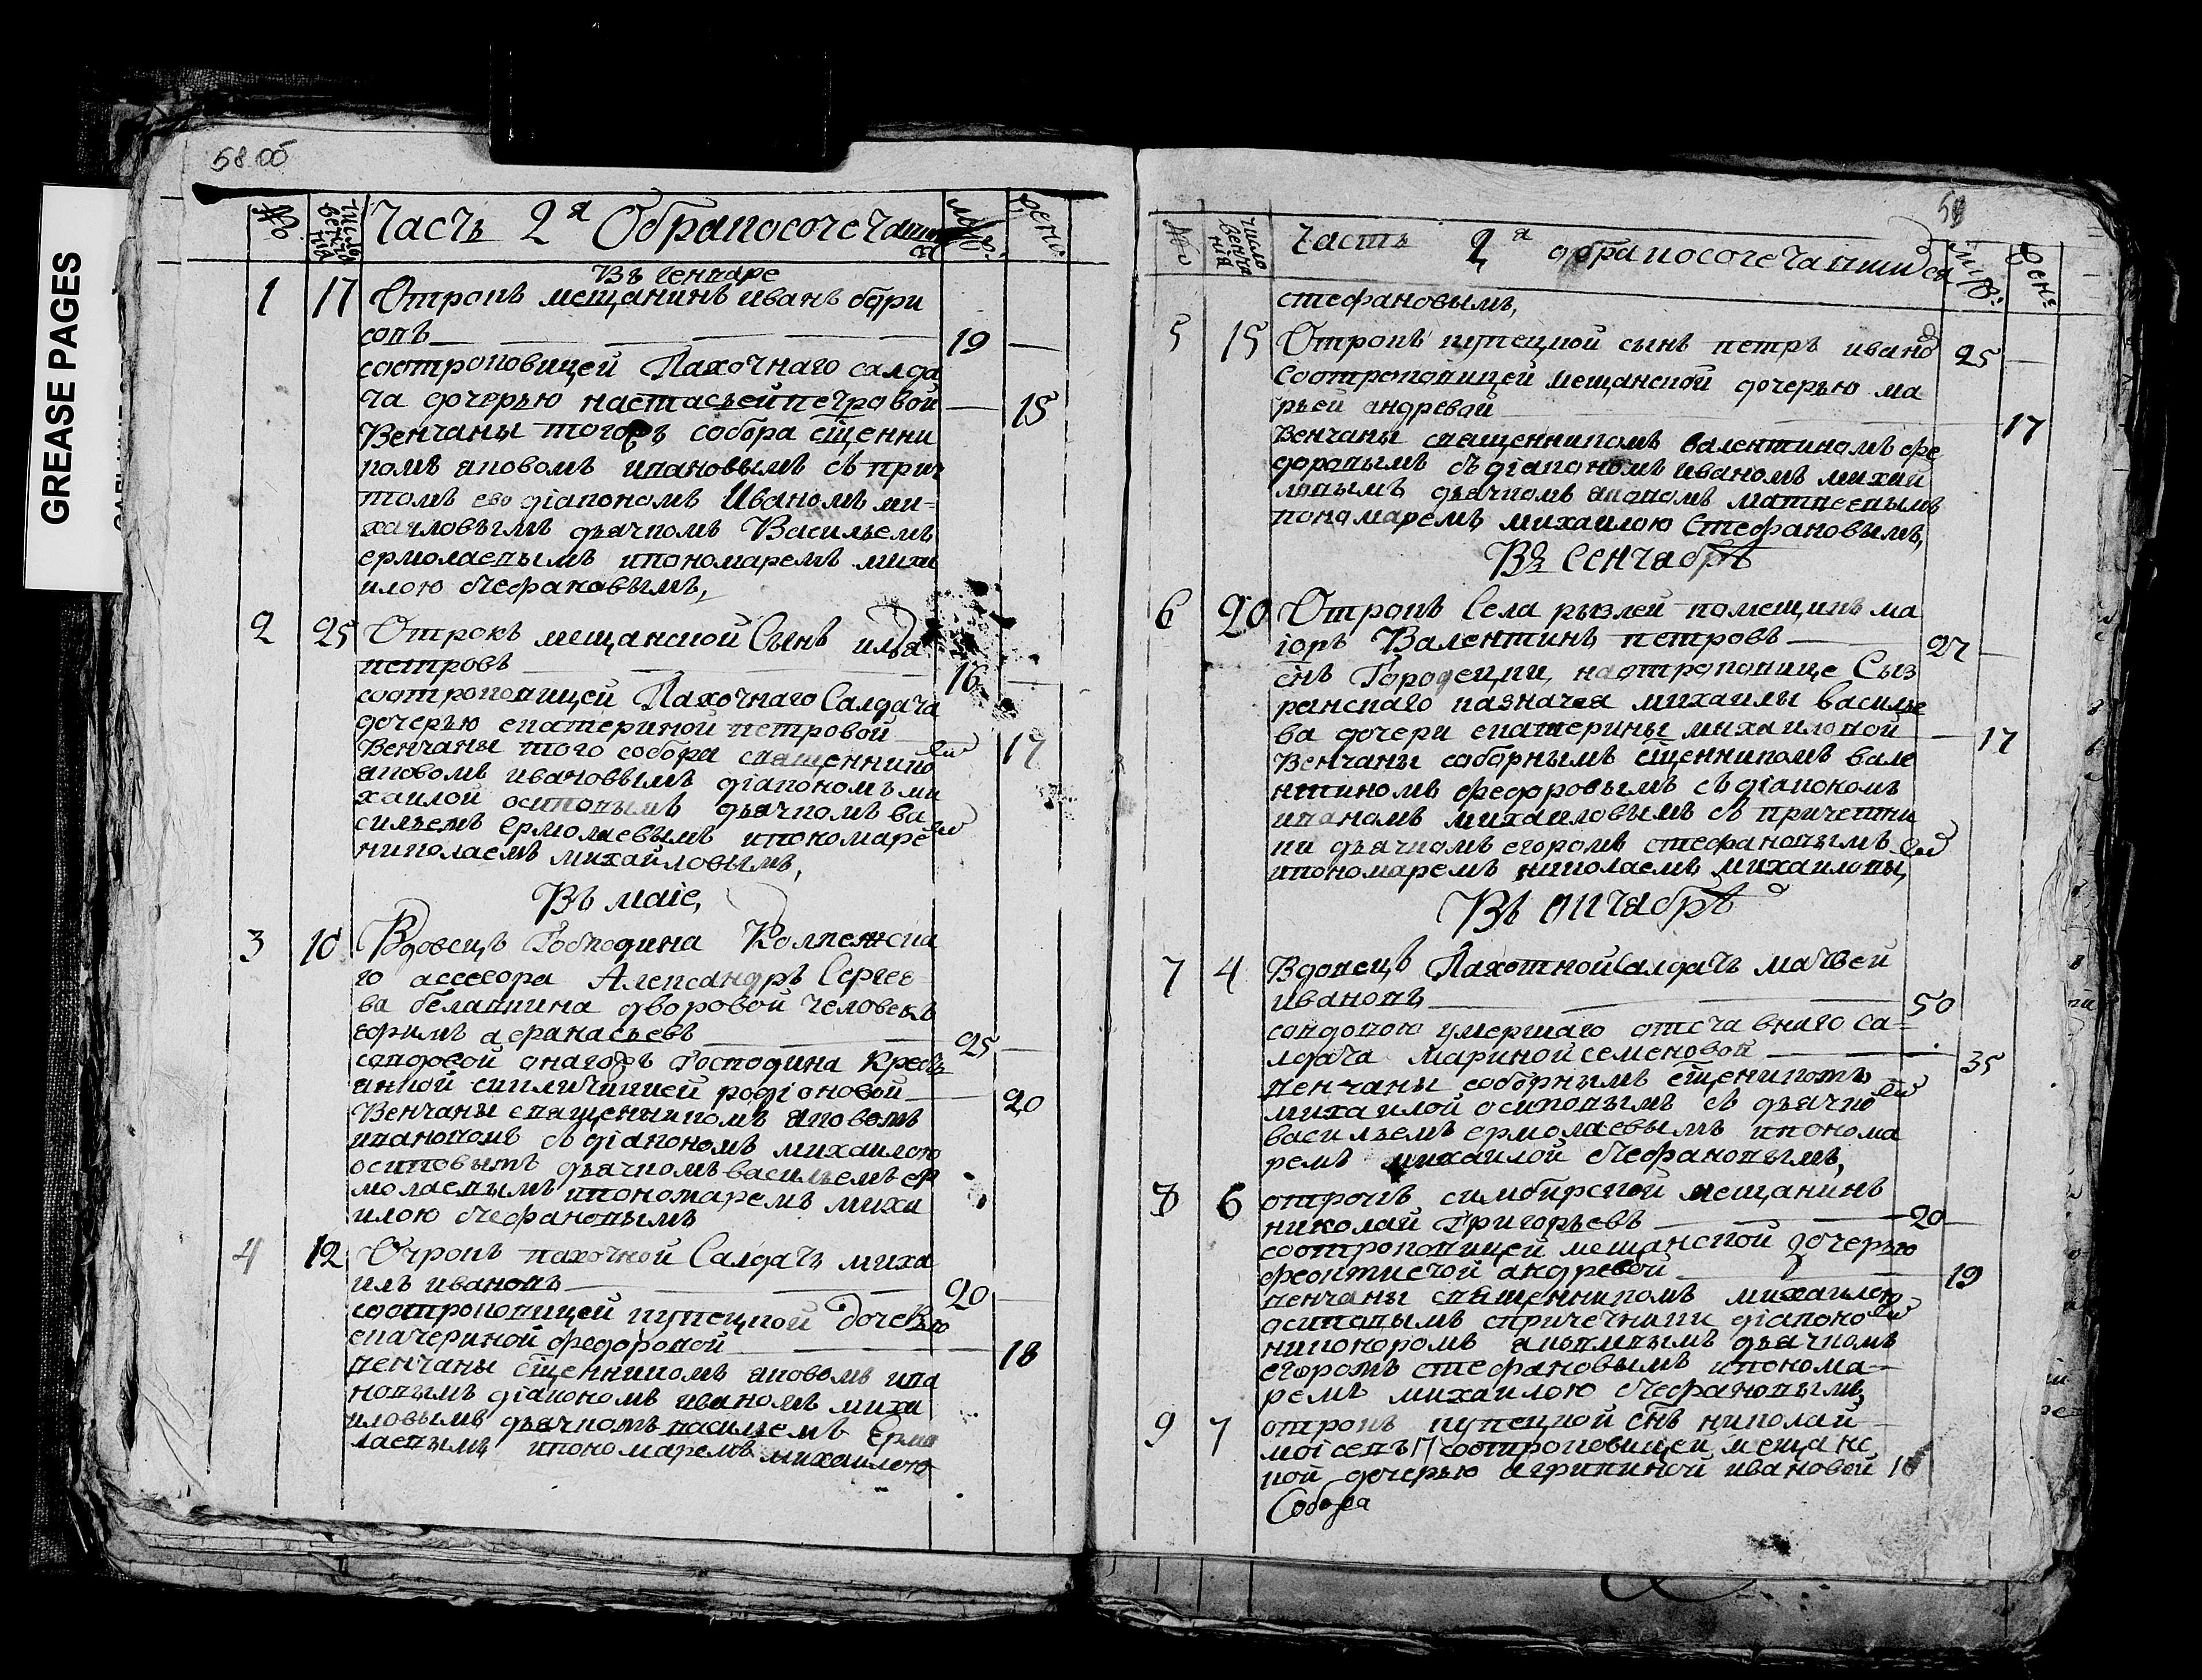 GREASE PAGES
58 об
№
число венчания
Часть 2я О бракосочетавши
ся
муж:
жен:
В генваре
1 17 Отрокъ мещанинъ иванъ бори
совъ 19
соотроковицей Пахочнаго салда
та дочерью настасьей петровой 15
Венчаны того собора сщенни
комъ яковомъ ивановымъ съ прич
томъ ево діакономъ Иваномъ ми-
хаиловымъ дьячкомъ Васильемъ
ермолаевымъ ипономаремъ миха
илою стефановымъ,
2 25 Отрокъ мещанской Сынъ илья
петровъ 16
соотроковицей Пахочнаго Салдата
дочерью екатериной петровой
Венчаны того собора священнико 17
яковомъ ивановымъ діакономъ ми
хаилой осиповымъ дьячкомъ ва
сильемъ ермолаевымъ ипономаре
николаемъ михайловымъ,
Въ маіе,
3 10 Вдовецъ Господина Колежска
го ассесора Александръ Сергее
ва белавкина дворовой человекъ
ефимъ афанасьевъ 25
совдовой онагожъ Господина Кресть
янкой родіоновой 20
Венчаны священникомъ яковомъ
ивановомъ съ діакономъ михаилою
осиповымъ дьячкомъ васильемъ ер
молаевымъ ипономаремъ миха
илою стефановымъ
4 12 Отрокъ пахочной Салдатъ миха
илъ ивановъ 20
соотроковицей купецкой дочерью
екатериной федоровой 18
венчаны сщенникомъ яковомъ ива
новымъ діакономъ иваномъ миха
иловымъ дьячкомъ васильемъ Ермо
лаевымъ ипономаремъ михаилою
59
№
число венчания
часть 2я о бракосочетавшихся
муж:
жен:
стефановымъ,
5 15 Отрокъ купецкой сынъ петръ ивано 25
Соотроковицей мещанской дочерью ма
рьей андревой 17
Венчаны священникомъ валентиномъ фе
доровымъ съ діакономъ иваномъ михаи
ловымъ дьячкомъ яковомъ матвеевымъ
пономаремъ михаилою Стефановымъ,
Въ Сентябрѣ
6 20 Отрокъ Села рызлей помещикъ ма
іоръ Валентинъ петровъ 27
снъ Городецки, на отроковице Сыз
ранскаго казначея михаилы василье
ва дочери екатерины михаиловой 17
Венчаны соборнымъ сщенникомъ вале
нтиномъ федоровымъ съ діакономъ
иваномъ михаиловымъ съ причетни
ки дьячкомъ егоромъ стефановымъ
ипономаремъ николаемъ михаиловы,
Въ октябрѣ
7 4 Вдовецъ Пахотной Салдатъ матвеи
ивановъ 50
совдовою умершаго отставнаго са-
лдата мариной семеновой 35
венчаны соборнымъ сщеникомъ
михаилой осиповымъ съ дьячко
васильемъ ермолаевымъ ипонома
ремъ михаилой стефановымъ,
8 6 отрокъ симбирской мещанинъ
николай Григорьевъ 20
соотроковицей мещанской дочерью
феоктистой андревой 19
венчаны священникомъ михаилою
осиповымъ спричетники діаконо
никоноромъ яковлевымъ дьячкомъ
егоромъ стефановымъ ипонома-
ремъ михаилою стефановымъ
9 7 отрокъ купецкой снъ николай
моісевъ 17 соотроковицей мещанс
кой дочерью агрипиной ивановой 16
Собора